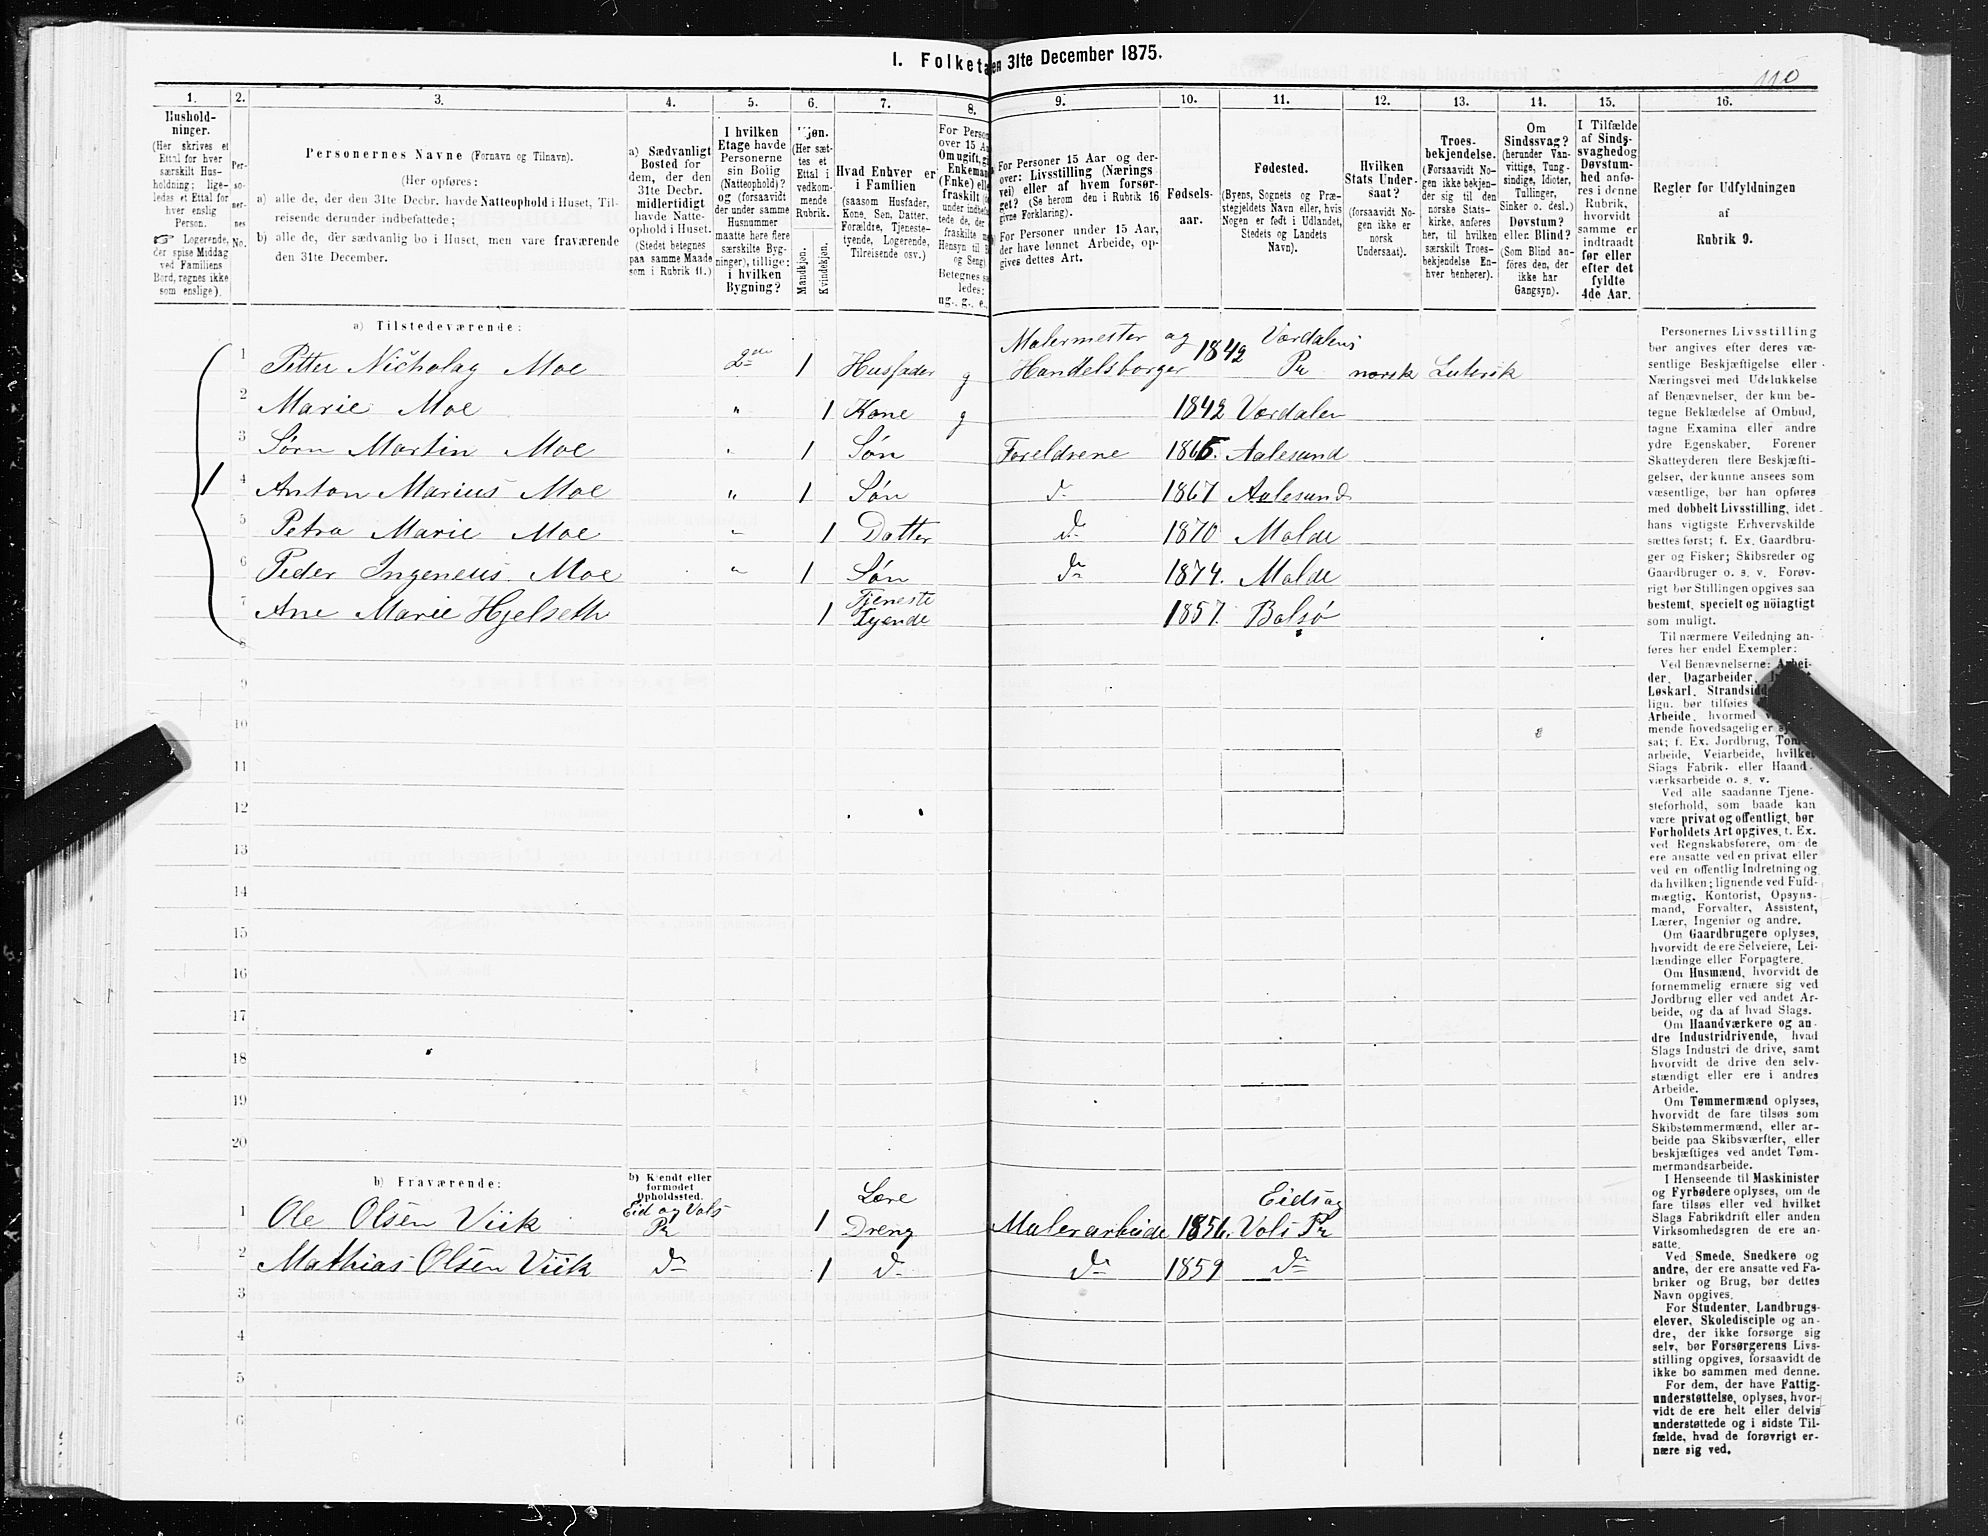 1. Folketa en 31te December 1875.
110
1. 2. 3. 4. 5. 6. 7. 8. 9. 10. 11. 12. 13. 14. 15. 16.
Hushold-
ninger.
(Her skrives et
Ettal for hver
særskilt Hus-
holdning; lige-
ledes et Ettal for
hver enslig
Person.
☞ Logerende,
der spise Middag
ved Familiens
Bord, regnes ikke
som enslige).
Per-
so-
ner-
nes
No.
Personernes Navne (Fornavn og Tilnavn).
(Her opføres:
a) alle de, der den 31te Decbr. havde Natteophold i Huset, Til-
reisende derunder indbefattede;
b) alle de, der sædvanlig bo i Huset, men vare fraværende
den 31te December.
a) Sædvanligt
Bosted for
dem, der den
31te Decbr.
midlertidigt
havde Natte-
ophold i Huset.
(Stedet betegnes
paa samme Maade
som i Rubrik 11.)
I hvilken
Etage havde
Personerne
sin Bolig
(Natteophold)?
og (forsaavidt
der under samme
Husnummer
maatte høre flere
særskilte Byg-
ninger), tillige:
i hvilken
Bygning?
Kjøn.
(Her sæt-
tes et
Ettal i
vedkom-
mende
Rubrik.
Mandkjøn.
Kvindekjøn.
Hvad Enhver er
i Familien
(saasom Husfader,
Kone, Søn, Datter,
Forældre, Tjeneste-
tyende, Logerende,
Tilreisende osv.)
For Person
over 15 Aa
Om ugift, gi
Enkeman
(Enke) elle
fraskilt (og
under indbefat-
tede de, der
fraskilte m
Hensyn til B
og Seng)
Betegnes sa
ledes:
ug., g., e.,
For Personer 15 Aar og der-
over: Livsstilling (Nærings
vei) eller af hvem forsør-
get? (Se herom den i Rubrik 16
givne Forklaring).
For Personer under 15 Aar,
der have lønnet Arbeide, op-
gives dettes Art.
Fødsels-
aar.
Fødested.
(Byens, Sognets og Præ-
stegjeldets Navn eller, hvis
Nogen er født i Udlandet,
Stedets og Landets
Navn).
Hvilken
Stats Under-
saat?
(forsaavidt No-
gen ikke er
norsk
Undersaat).
Troes-
bekjendelse.
(Forsaavidt No-
gen ikke beken-
der sig til den
norske Stats-
kirke, anføres
her, til hvilken
særskilt Troes-
bekjendelse En-
hver henhører).
Om
Sindssvag?
(herunder Van-
vittige, Tung-
sindige, Idioter,
Tullinger,
Sinker o. desl.)
Døvstum?
eller Blind?
(Som Blind an-
føres den, der
ikke har
Gangsyn).
I Tilfælde
af Sinds-
svaghed og
Døvstum-
hed anfø-
res i denne
Rubrik,
hvorvidt
samme er
indtraadt
før eller
efter det
fyldte
4de Aar.
Regler for Udfyldningen
af
Rubrik 9.
a) Tilstedeværende:
Malermester og
Værdalens
1 Petter Nicholay Moe 2de 1 Husfader g Handelsborger 1842 Pr norsk Lutersk
2 Marie Moe " 1 Kone g 1842 Værdalen
3 Sørn Martin Moe " 1 Søn Foreldrene 1865. Aalesund
1
4 Anton Marius Moe " 1 Søn do 1867 Aalesund
5 Petra Marie Moe " 1 Datter do 1870 Molde
6 Peder Ingeneus. Moe " 1 Søn do 1874. Molde
Tjeneste
7 Ane Marie Hjelseth 1 Tyende 1857. Bolsø
8
9
10
11
12
13
14
15
16
17
18
19
20
b) Fraværende:
b) Kjendt eller
formodet
Opholdssted.
Eid og Vols Lære Eids og
1 Ole Olsen Viik Pr 1 Dreng Malerarbeide 1856. Vols Pr
2 Mathias Olsen Viik do 1 do do 1859 do
3
4
5
6
Personernes Livsstilling
bør angives efter deres væ-
sentlige Beskjæftigelse eller
Næringsvei med Udelukkelse
af Benævnelser, der kun be-
tegne Beklædelse af Ombud,
tagne Examina eller andre
ydre Egenskaber. Forener
Skatteyderen flere Beskjæfti-
gelser, der kunne ansees som
væsentlige, bør han opføres
med dobbelt Livsstilling, idet
hans vigtigste Erhvervskilde
sættes først; f. Ex. Gaardbru-
ger og Fisker; Skibsreder og
Gaardbruger o. s. v. Forøv-
rigt bør Stillingen opgives saa
bestemt, specielt og nöiagtigt
som muligt.
Til nærmere Veiledning an-
føres her endel Exempler:
Ved Benævnelserne: Arbei-
der, Dagarbeider,
Løskarl, Strandsidd
lign. bør tilføies
Arbeide, hvormed
mende hovedsagelig er sy
sat; f. Ex. Jordbrug, Tom
arbeide, Veiarbeide, hvilket
Slags Fabrik- eller Haand-
værksarbeide o. s. v.
Ved alle saadanne Tjene-
steforhold, som baade kan
være privat og offentligt, bør
Forholdets Art opgives, t. Ex.
ved Regnskabsførere, om de
ere ansatte ved en privat eller
ved en offentlig Indretning og
da hvilken; lignende ved Fuld-
mægtig, Kontorist, Opsyns-
mand, Forvalter, Assistent,
Lærer, Ingeniør og andre.
Om Gaardbrugere oplyses,
hvorvidt de ere Selveiere, Lei-
lændinge eller Forpagtere.
Om Husmænd, hvorvidt de
fornemmelig ernære sig ved
Jordbrug eller ved andet Ar-
beide, og da af hvad Slags.
Om Haandværkere og an-
dre Industridrivende, hvad
Slags Industri de drive, samt
hvorvidt de drive den selv-
stændigt eller ere i andres
Arbeide.
Om Tømmermænd oplyses,
hvorvidt de fare tilsøs som
Skibstømmermænd, eller ar-
beide paa Skibsværfter, eller
beskjæftiges ved andet Tøm-
mermandsarbeide.
I Henseende til Maskinister
og Fyrbødere oplyses, om de
fare tilsøs eller ved hvilket
Slags Fabrikdrift eller anden
Virksomhedsgren de ere an-
satte.
Ved Smede, Snedkere og
andre, der ere ansatte ved Fa-
briker og Brug, bør dettes
Navn opgives.
For Studenter, Landbrugs-
elever, Skoledisciple og an-
dre, der ikke forsørge sig
selv, bør Forsørgerens Livs-
stilling opgives, forsaavidt de
ikke bo sammen med denne.
For dem, der have Fattig-
understøttelse, oplyses, hvor-
vidt de ere helt eller delvis
understøttede og i sidste Til-
fælde, hvad de forøvrigt er-
nære sig ved.